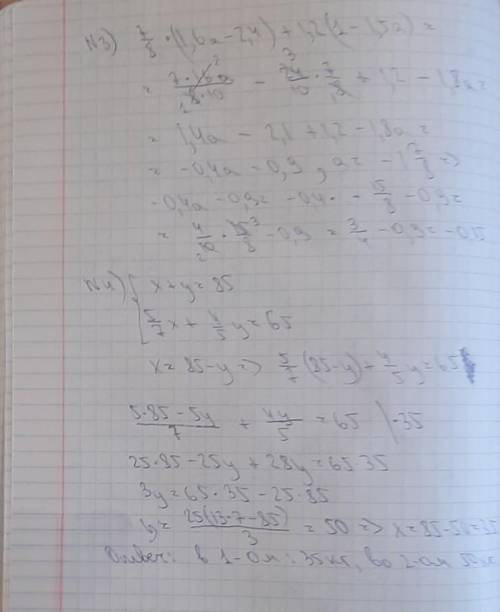 N3) 7/8 · (1,6a - 2,4) + 1,2(1 - 1,5a) =
= 7·16a/8·10 - 24/10 · 7/8 + 1,2 - 1,8a =
= 1,4a - 2,1 + 1,2 - 1,8a =
= -0,4a - 0,9, a = -1 7/8 =>
-0,4a - 0,9 = -0,4 · - 15/8 - 0,9 =
= 4/10 · 15/8 - 0,9 = 3/4 - 0,9 = -0,15
N4) { x + y = 85
5/7 x + 4/5 y = 65
x = 85 - y => 5/7 (85 - y) + 4/5 y = 65
5·85 - 5y/7 + 4y/5 = 65 | ·35
25·85 - 25y + 28y = 65·35
3y = 65·35 - 25·85
y = 25(13·7 - 85)/3 = 50 => x = 85 - 50 = 35
Ответ: в 1-ом: 35 кг, во 2-ом 50 кг